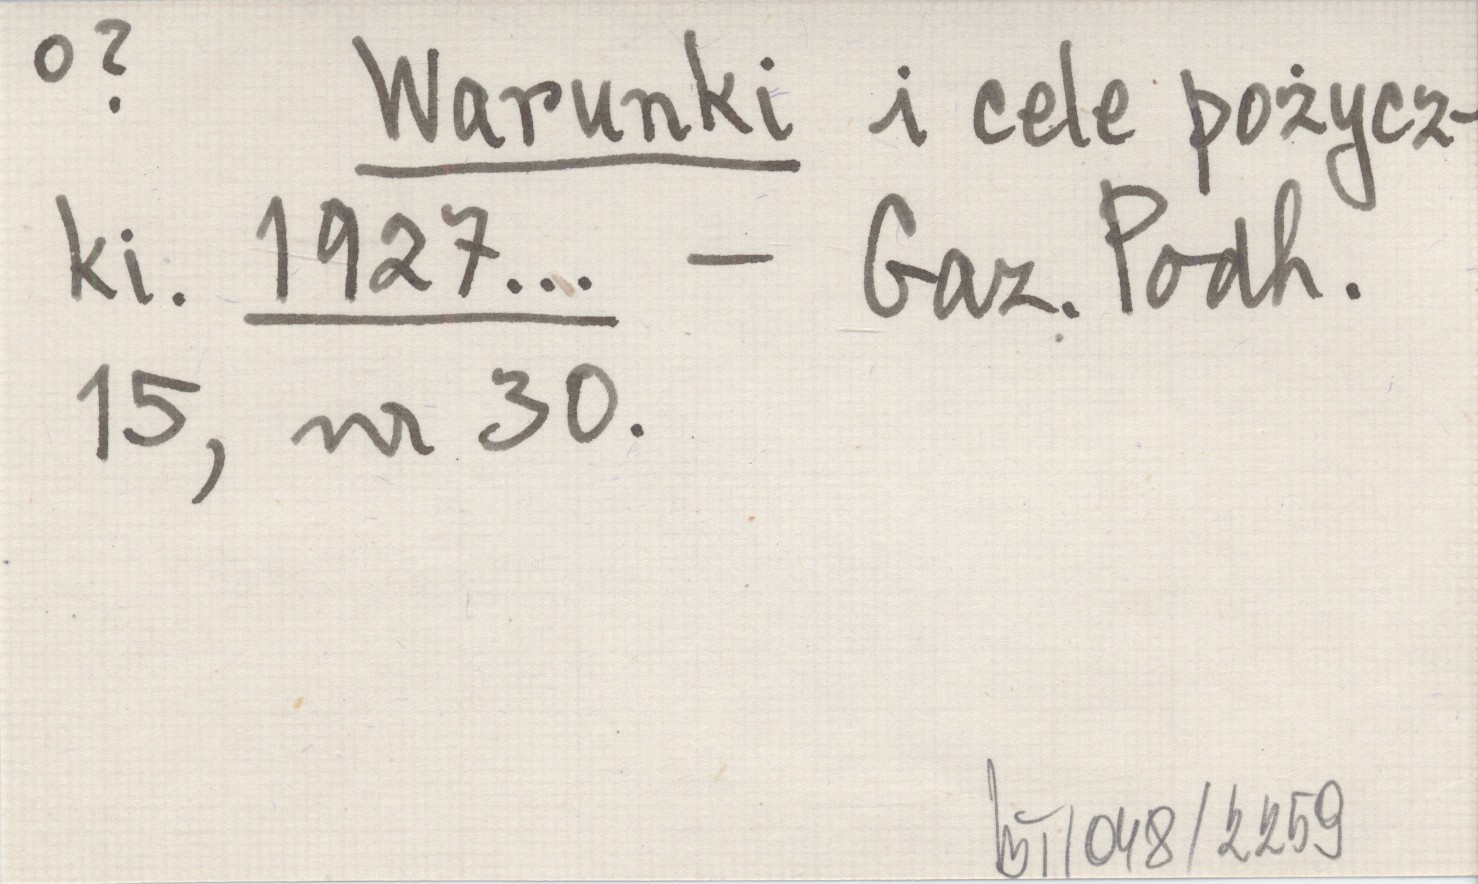 o?
Warunki i cele pożycz-
ki. 1927... – Gaz. Podh.
15, nr 30.
/048/2259